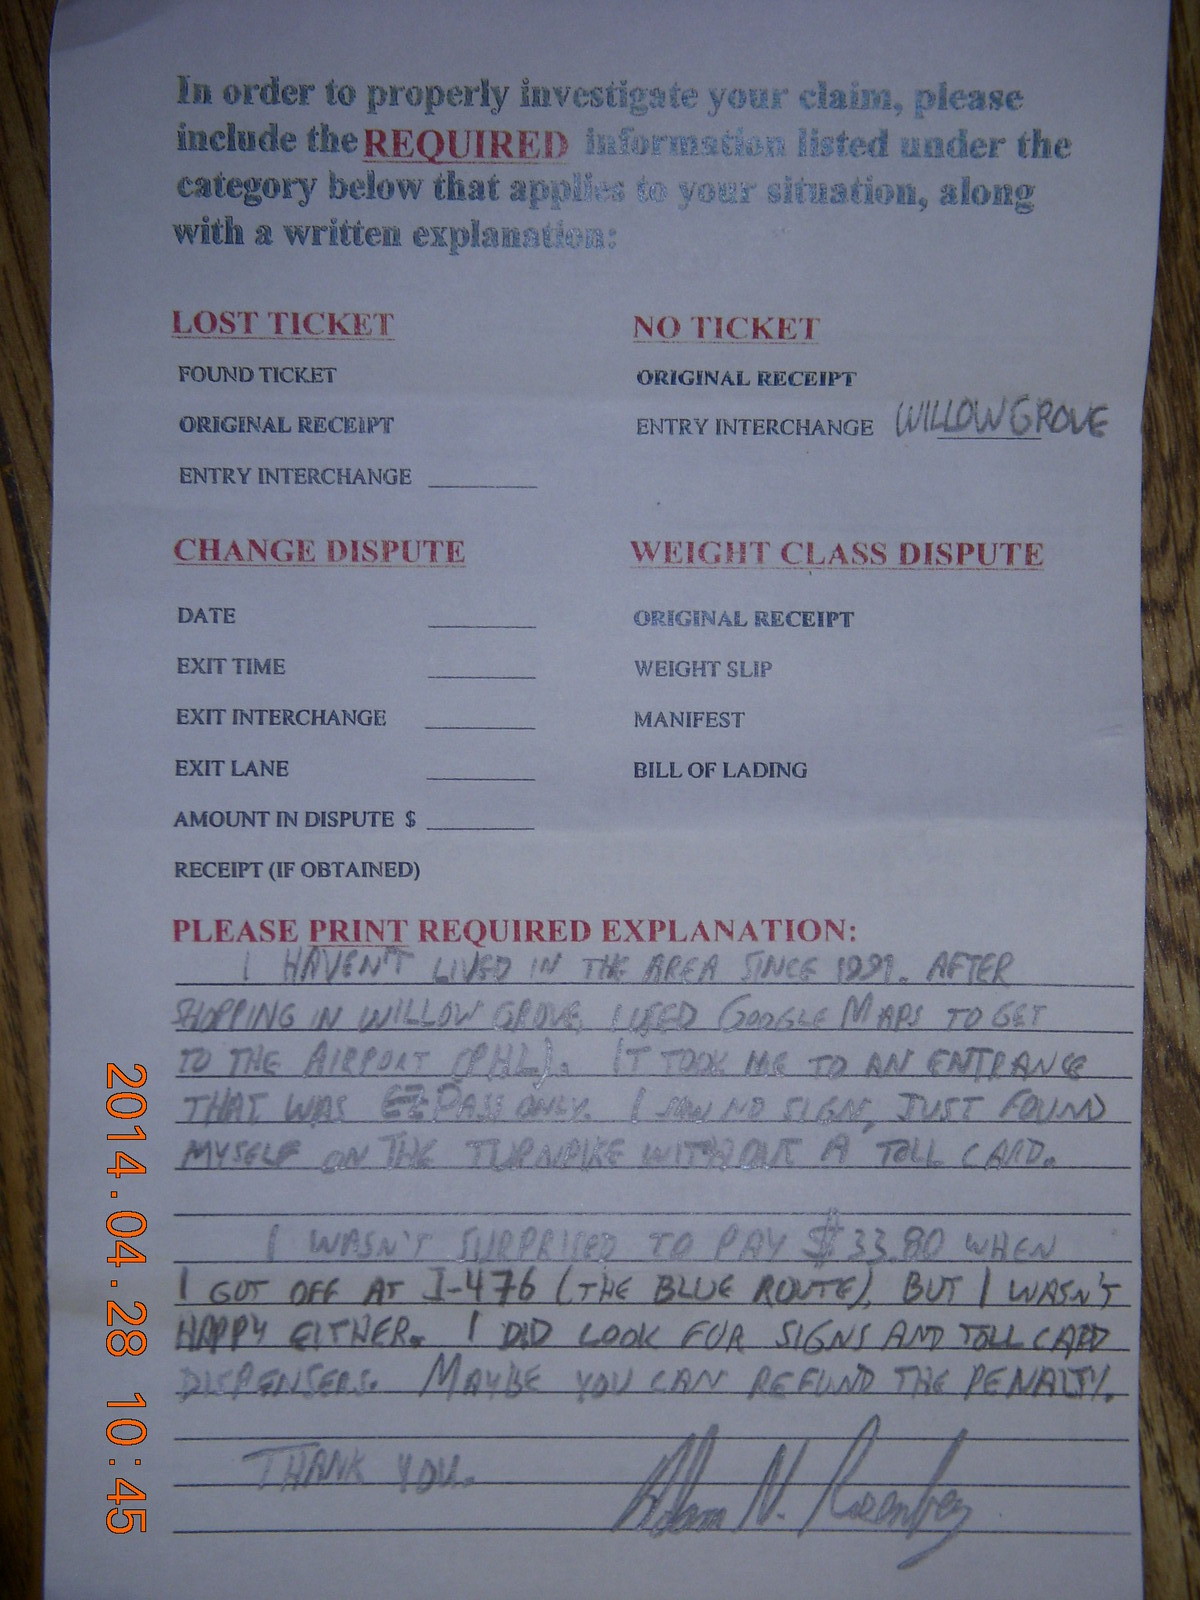 In order to properly investigate your claim, please
include the REQUIRED information listed under the
category below that applies to your situation, along
with a written explanation:
LOST TICKET
FOUND TICKET
ORIGINAL RECEIPT
ENTRY INTERCHANGE
NO TICKET
ORIGINAL RECEIPT
ENTRY INTERCHANGE WILLOW GROVE
CHANGE DISPUTE
DATE
EXIT TIME
EXIT INTERCHANGE
EXIT LANE
AMOUNT IN DISPUTE $
RECEIPT (IF OBTAINED)
WEIGHT CLASS DISPUTE
ORIGINAL RECEIPT
WEIGHT SLIP
MANIFEST
BILL OF LADING
PLEASE PRINT REQUIRED EXPLANATION:
I HAVEN'T LIVED IN THE AREA SINCE 1991. AFTER
SHOPPING IN WILLOW GROVE, I USED GOOGLE MAPS TO GET
TO THE AIRPORT (PHL). IT TOOK ME TO AN ENTRANCE
THAT WAS EZPASS ONLY. I SAW NO SIGN, JUST FOUND
MYSELF ON THE TURNPIKE WITHOUT A TOLL CARD.
I WASN'T SURPRISED TO PAY $33.80 WHEN
I GOT OFF AT I-476 (THE BLUE ROUTE), BUT I WASN'T
HAPPY EITHER. I DID LOOK FOR SIGNS AND TOLL CARD
DISPENSERS. MAYBE YOU CAN REFUND THE PENALTY.
THANK YOU. Adam N. Rosenberg
2014.04.28 10:45